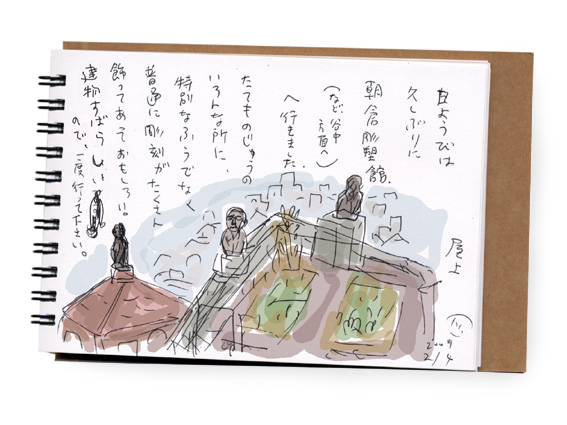 日ようびは
久しぶりに
朝倉彫塑館.
(など谷中
方面へ)
へ行きました.
たてものじゅうの
いろんな所に、
特別なふうでなく
普通に彫刻がたくさん
飾ってあっておもしろい。
建物すばらしい
ので、一度行って下さい。
屋上
2009
2/4